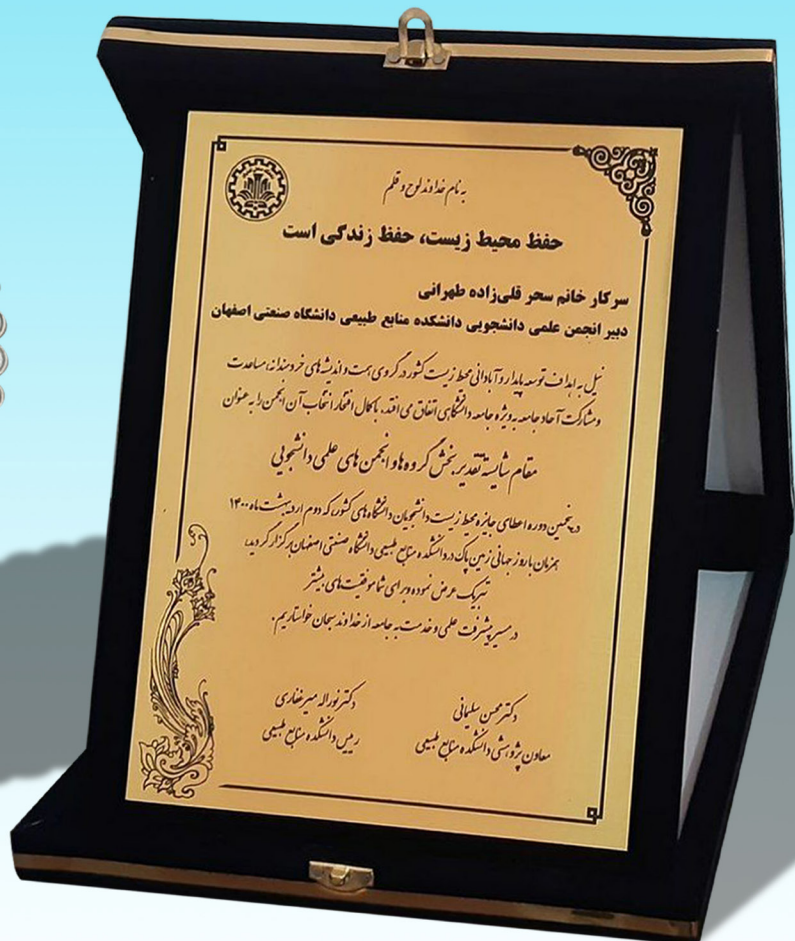 به نام خداوند لوح و قلم
حفظ محیط زیست، حفظ زندگی است
سرکار خانم سحر قلی‌زاده طهرانی
دبیر انجمن علمی دانشجویی دانشکده منابع طبیعی دانشگاه صنعتی اصفهان
نیل به اهداف توسعه پایدار و آبادانی محیط زیست کشور در گروی همت و اندیشه‌های خردمندانه، مساعدت
و مشارکت آحاد جامعه به ویژه جامعه دانشگاهی اتفاق می افتد. با کمال افتخار انتخاب آن انجمن را به عنوان
مقام شایسته تقدیر بخش گروه ها و انجمن های علمی دانشجویی
در پنجمین دوره اعطای جایزه محیط زیست دانشجویان دانشگاه های کشور، که دوم اردیبهشت ماه ۱۴۰۰
همزمان با روز جهانی زمین پاک در دانشکده منابع طبیعی دانشگاه صنعتی اصفهان برگزار گردید،
تبریک عرض نموده و برای شما موفقیت های بیشتر
در مسیر پیشرفت علمی و خدمت به جامعه از خداوند سبحان خواستاریم.
دکتر محسن سلیمانی
معاون پژوهشی دانشکده منابع طبیعی
دکتر نوراله میرغفاری
رییس دانشکده منابع طبیعی